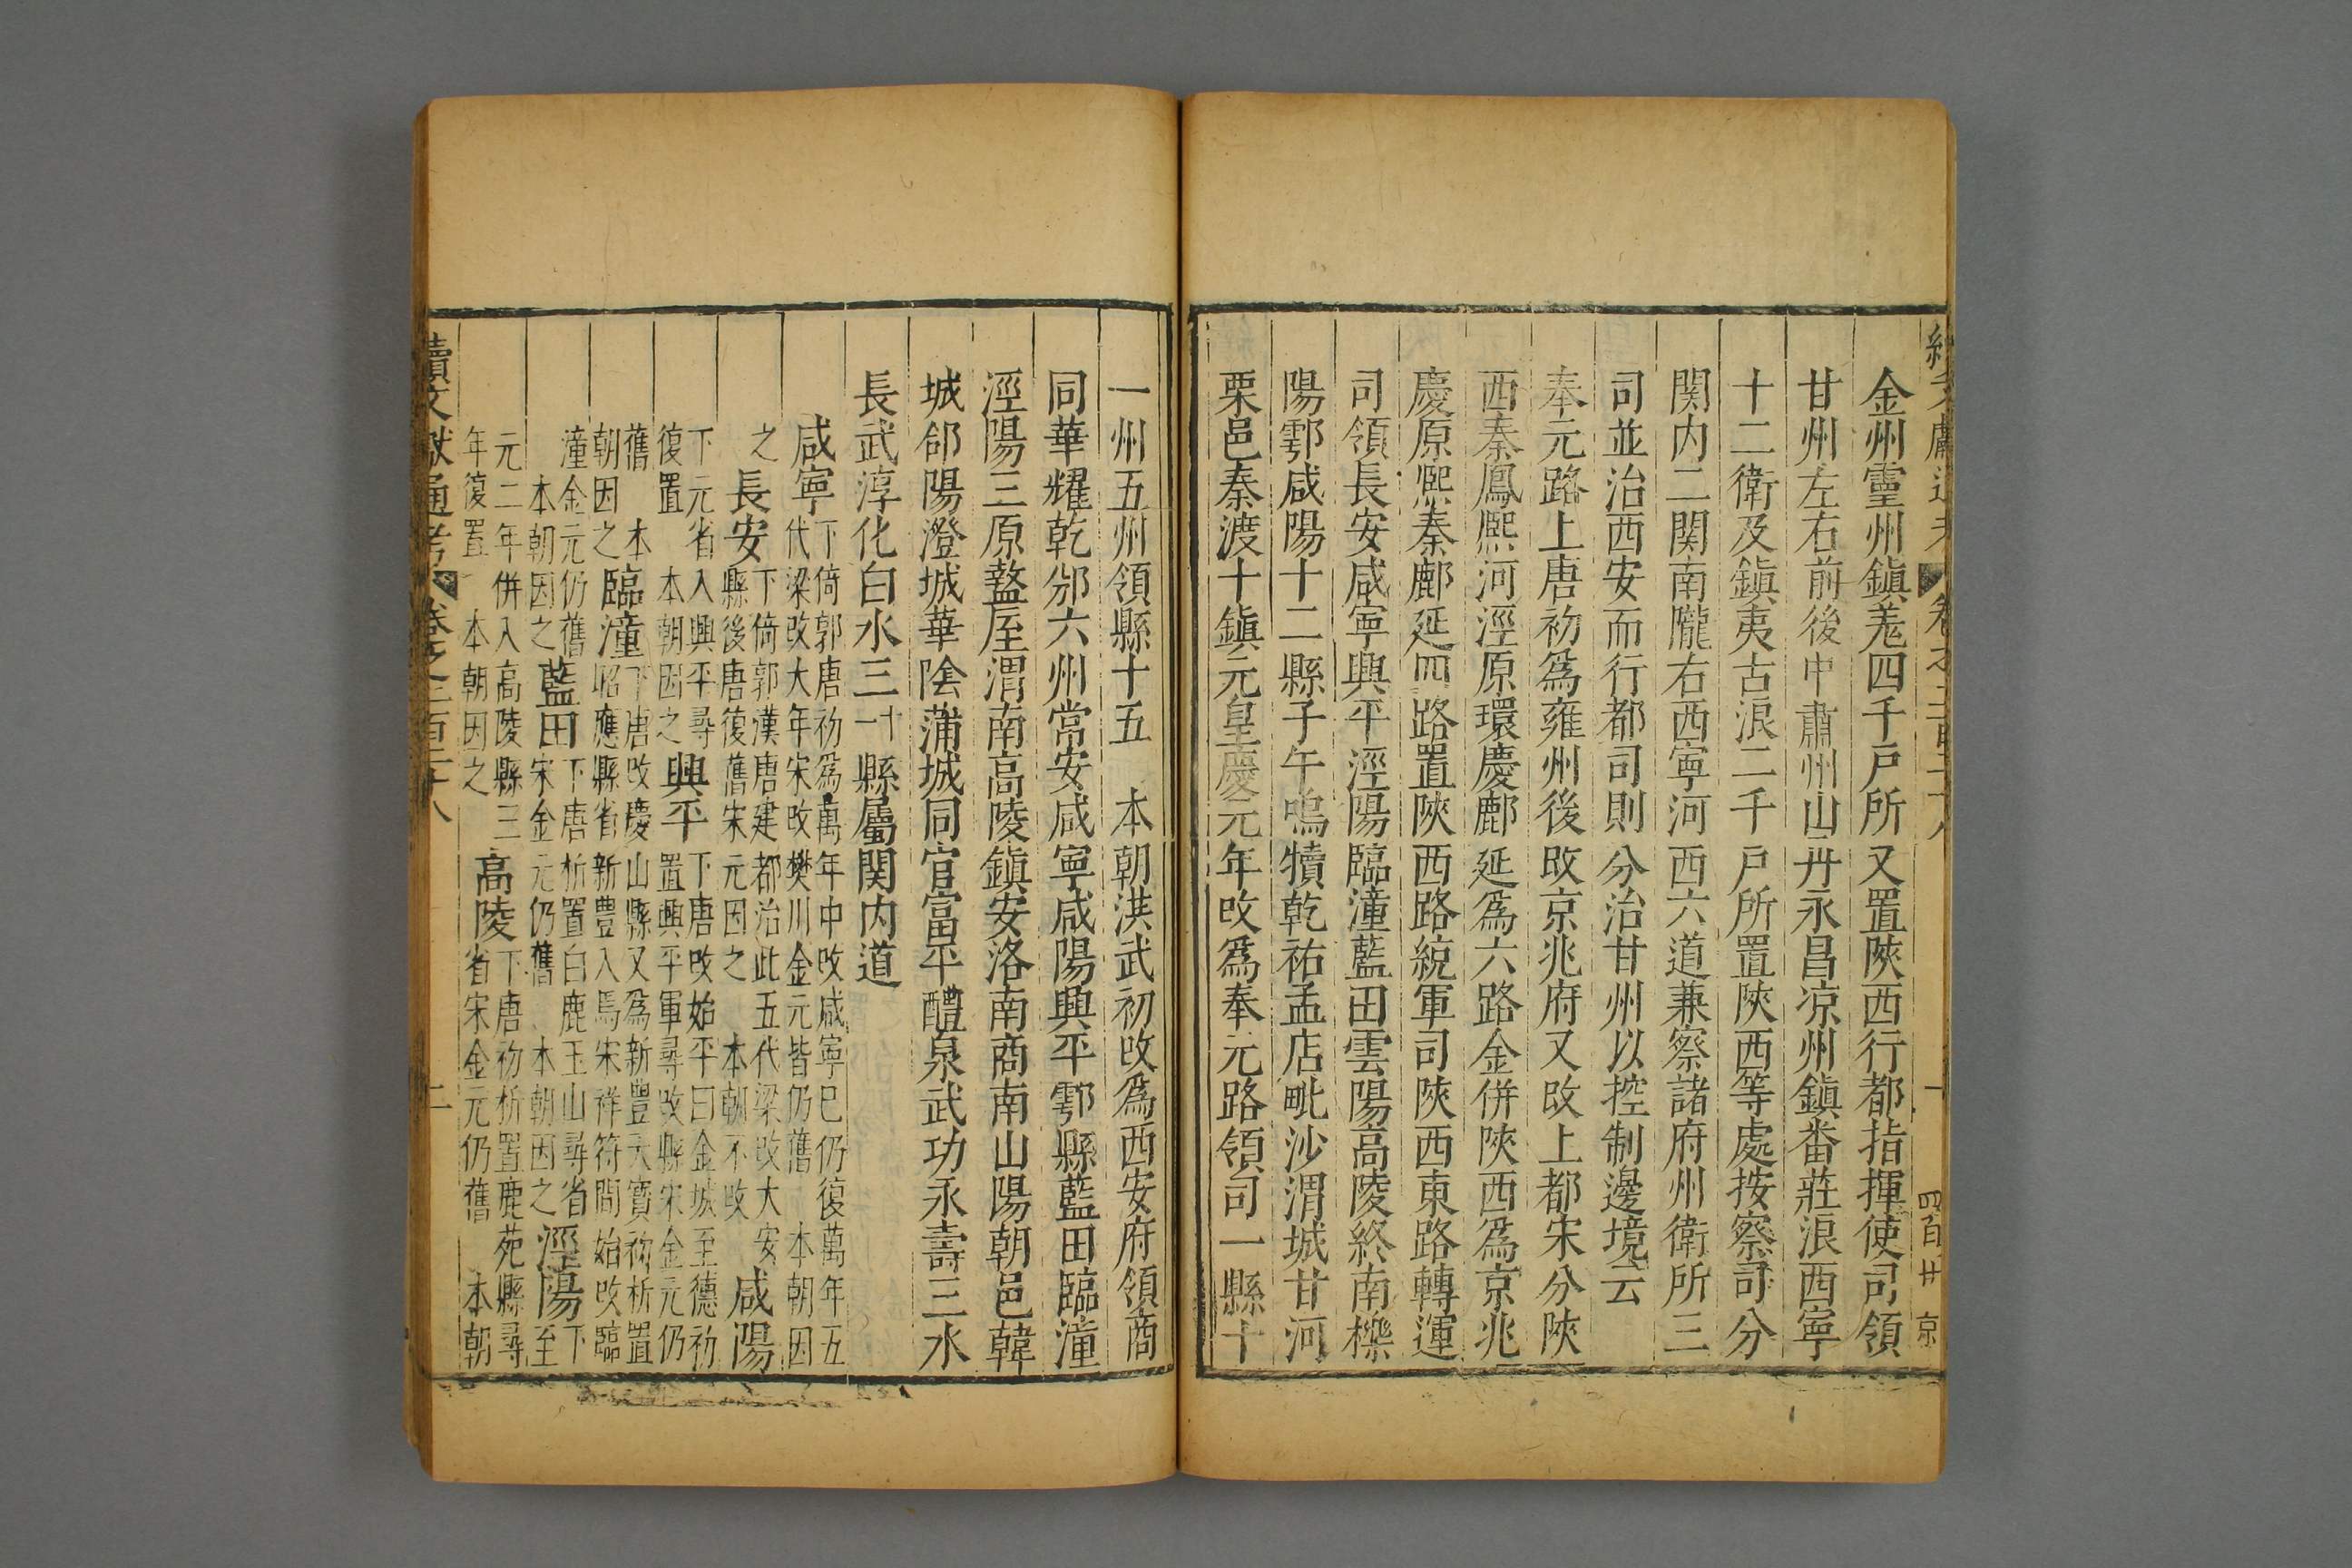 金州靈州鎮羗四千戸所又置陝西行都指揮使司領
甘州左右前後中肅州山丹永昌凉州鎮番莊浪西寧
十二衛及鎮夷古浪二千戸所置陝西等處按察司分
関内二関南隴右西寧河西六道兼察諸府州衛所三
司並治西安而行都司則分治甘州以控制邊境云
奉元路上唐初爲雍州後改京兆府又改上都宋分陝
西秦鳳熙河涇原環慶鄜延爲六路金併陝西爲京兆
慶原熙秦鄜延四路置陝西路統軍司陝西東路轉運
司領長安咸寧興平涇陽臨潼藍田雲陽高陵終南櫟
陽鄠咸陽十二縣子午鳴犢乾祐孟店毗沙渭城甘河
栗邑秦渡十鎮元皇慶元年改爲奉元路領司一縣十
一州五州領縣十五　本朝洪武初改爲西安府領商
同華耀乾邠六州常安咸寧咸陽興平鄠縣藍田臨潼
涇陽三原盩厔渭南高陵鎮安洛南商南山陽朝邑韓
城郃陽澄城華陰蒲城同官富平醴泉武功永壽三水
長武淳化白水三十一縣屬関内道
咸寧下倚郭唐初爲萬年中改咸寧已仍復萬年五
代梁改大年宋改樊川金元皆仍舊　本朝因
之長安下倚郭漢唐建都治此五代梁改大安
縣後唐復舊宋元因之　本朝不改咸陽
下元省入興平尋
復置　本朝因之興平下唐改始平曰金城至德初
置興平軍尋改縣宋金元仍
舊　本
朝因之臨潼下唐改慶山縣又爲新豐天寶初析置
昭應縣省新豐入焉宋祥符間始改臨
潼金元仍舊
本朝因之藍田下唐析置白鹿玉山尋省
宋金元仍舊　本朝因之涇陽下
至
元二年併入高陵縣三
年復置　本朝因之高陵下唐初析置鹿苑縣尋
省宋金元仍舊　本朝
續文獻通考　卷之二百二十八　二